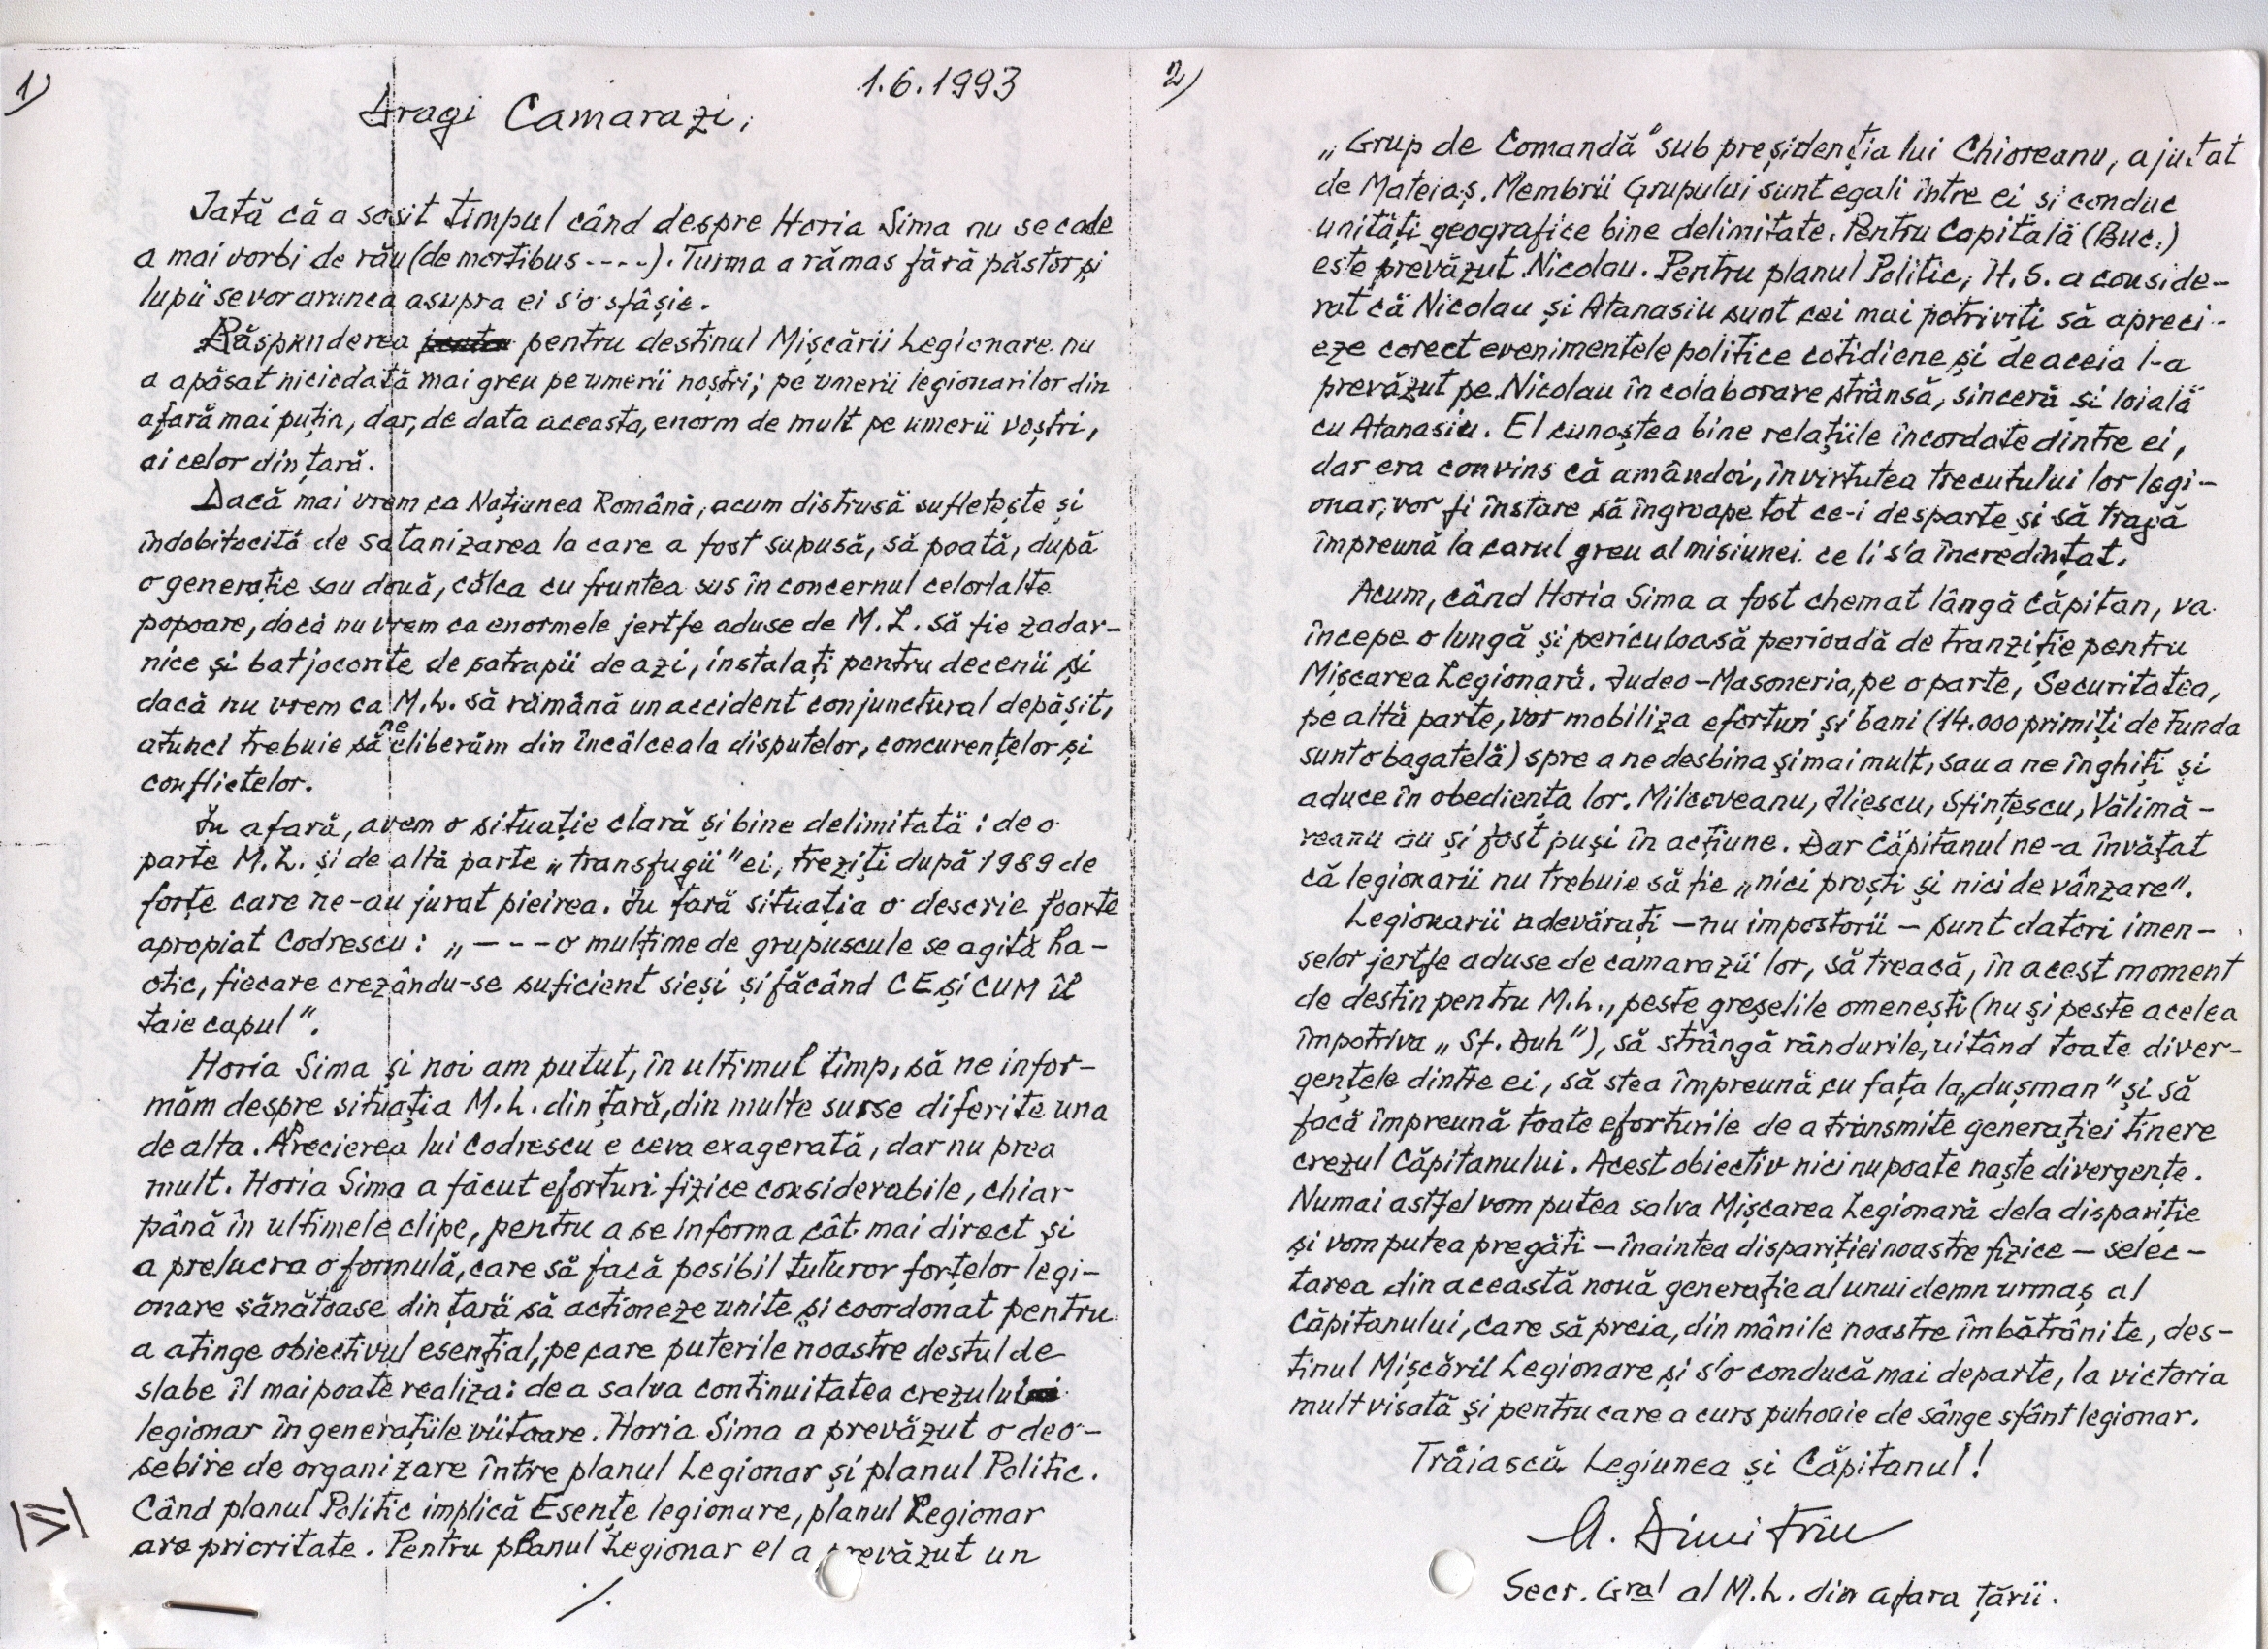 1)
1.6.1993
Dragi Camarazi,
Iată că a sosit timpul când despre Horia Sima nu se cade
a mai vorbi de rău (de mortibus ----). Turma a rămas fără păstor și
lupii se vor arunca asupra ei s'o sfâșie.
Răspunderea pentru destinul Mișcării Legionare nu
a apăsat niciodată mai greu pe umerii noștri; pe umerii legionarilor din
afară mai puțin, dar, de data aceasta, enorm de mult pe umerii voștri,
ai celor din țară.
Dacă mai vrem ca Națiunea Română, acum distrusă sufletește și
îndobitocită de satanizarea la care a fost supusă, să poată, după
o generație sau două, călca cu fruntea sus în concernul celorlalte
popoare, dacă nu vrem ca enormele jertfe aduse de M.L. să fie zadar-
nice și batjocorite de satrapii de azi, instalați pentru decenii și
dacă nu vrem ca M.L. să rămână un accident conjunctural depășit,
atunci trebuie să ne eliberăm din încâlceala disputelor, concurențelor și
conflictelor.
În afară, avem o situație clară și bine delimitată: de o
parte M.L. și de altă parte „transfugii" ei, treziți după 1989 de
forțe care ne-au jurat pieirea. În țară situația o descrie foarte
apropiat Codrescu: „---o mulțime de grupuscule se agită ha-
otic, fiecare crezându-se suficient sieși și făcând CE și CUM îl
taie capul".
Horia Sima și noi am putut, în ultimul timp, să ne infor-
măm despre situația M.L. din țară, din multe surse diferite una
de alta. Aprecierea lui Codrescu e ceva exagerată, dar nu prea
mult. Horia Sima a făcut eforturi fizice considerabile, chiar
până în ultimele clipe, pentru a se informa cât mai direct și
a prelucra o formulă, care să facă posibil tuturor forțelor legi-
onare sănătoase din țară să acționeze unite și coordonat pentru
a atinge obiectivul esențial, pe care puterile noastre destul de
slabe îl mai poate realiza: de a salva continuitatea crezului
legionar în generațiile viitoare. Horia Sima a prevăzut o deo-
sebire de organizare între planul Legionar și planul Politic.
Când planul Politic implică Esențe legionare, planul Legionar
are prioritate. Pentru planul Legionar el a prevăzut un
./.
IVI
2)
„Grup de Comandă" sub preșidenția lui Chioreanu, ajutat
de Mateiaș. Membrii Grupului sunt egali între ei si conduc
unități geografice bine delimitate. Pentru Capitală (Buc.)
este prevăzut Nicolau. Pentru planul Politic, H.S. a conside-
rat că Nicolau și Atanasiu sunt cei mai potriviți să apreci-
eze corect evenimentele politice cotidiene și de aceia l-a
prevăzut pe Nicolau în colaborare strânsă, sinceră si loială
cu Atanasiu. El cunoștea bine relațiile încordate dintre ei,
dar era convins că amândoi, în virtutea trecutului lor legi-
onar, vor fi în stare să îngroape tot ce-i desparte și să tragă
împreună la carul greu al misiunei ce li s'a încredințat.
Acum, când Horia Sima a fost chemat lângă Căpitan, va
începe o lungă și periculoasă perioadă de tranziție pentru
Mișcarea Legionară. Judeo-Masoneria, pe o parte, Securitatea,
pe altă parte, vor mobiliza eforturi și bani (14.000 primiți de Funda
sunt o bagatelă) spre a ne desbina și mai mult, sau a ne înghiți și
aduce în obediența lor. Milcoveanu, Iliescu, Sfințescu, Vălimă-
reanu au și fost puși în acțiune. Dar Căpitanul ne-a învățat
că legionarii nu trebuie să fie „nici proști și nici de vânzare".
Legionarii adevărați – nu impostorii – sunt datori imen-
selor jertfe aduse de camarazii lor, să treacă, în acest moment
de destin pentru M.L., peste greșelile omenești (nu și peste acelea
împotriva „Sf. Duh"), să strângă rândurile, uitând toate diver-
gențele dintre ei, să stea împreună cu fața la „dușman" și să
facă împreună toate eforturile de a transmite generației tinere
crezul Căpitanului. Acest obiectiv nici nu poate naște divergențe.
Numai astfel vom putea salva Mișcarea Legionară dela dispariție
și vom putea pregăti – înaintea dispariției noastre fizice – selec-
tarea din această nouă generație al unui demn urmaș al
Căpitanului, care să preia, din mânile noastre îmbătrânite, des-
tinul Mișcării Legionare și s'o conducă mai departe, la victoria
mult visată și pentru care a curs puhoaie de sânge sfânt legionar.
Trăiască Legiunea și Căpitanul!
M. Dimitriu
Secr. Gral al M.L. din afara țării.